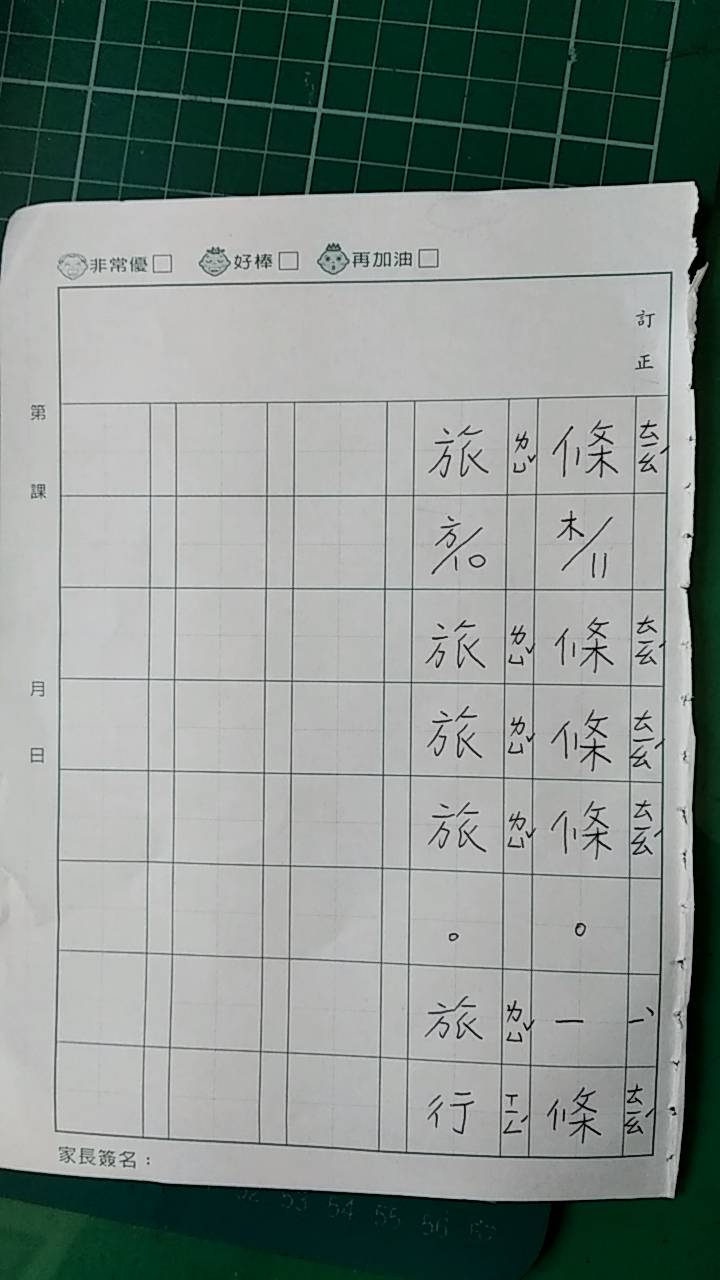 非常優□ 好棒□ 再加油□
訂正
條ㄊㄧㄠˊ
木/11
條ㄊㄧㄠˊ
條ㄊㄧㄠˊ
條ㄊㄧㄠˊ
。
一ㄧˋ
條ㄊㄧㄠˊ
旅ㄌㄩˇ
方/10
旅ㄌㄩˇ
旅ㄌㄩˇ
旅ㄌㄩˇ
。
旅ㄌㄩˇ
行ㄒㄧㄥˊ
第 課 月 日
家長簽名：
52 53 54 55 56